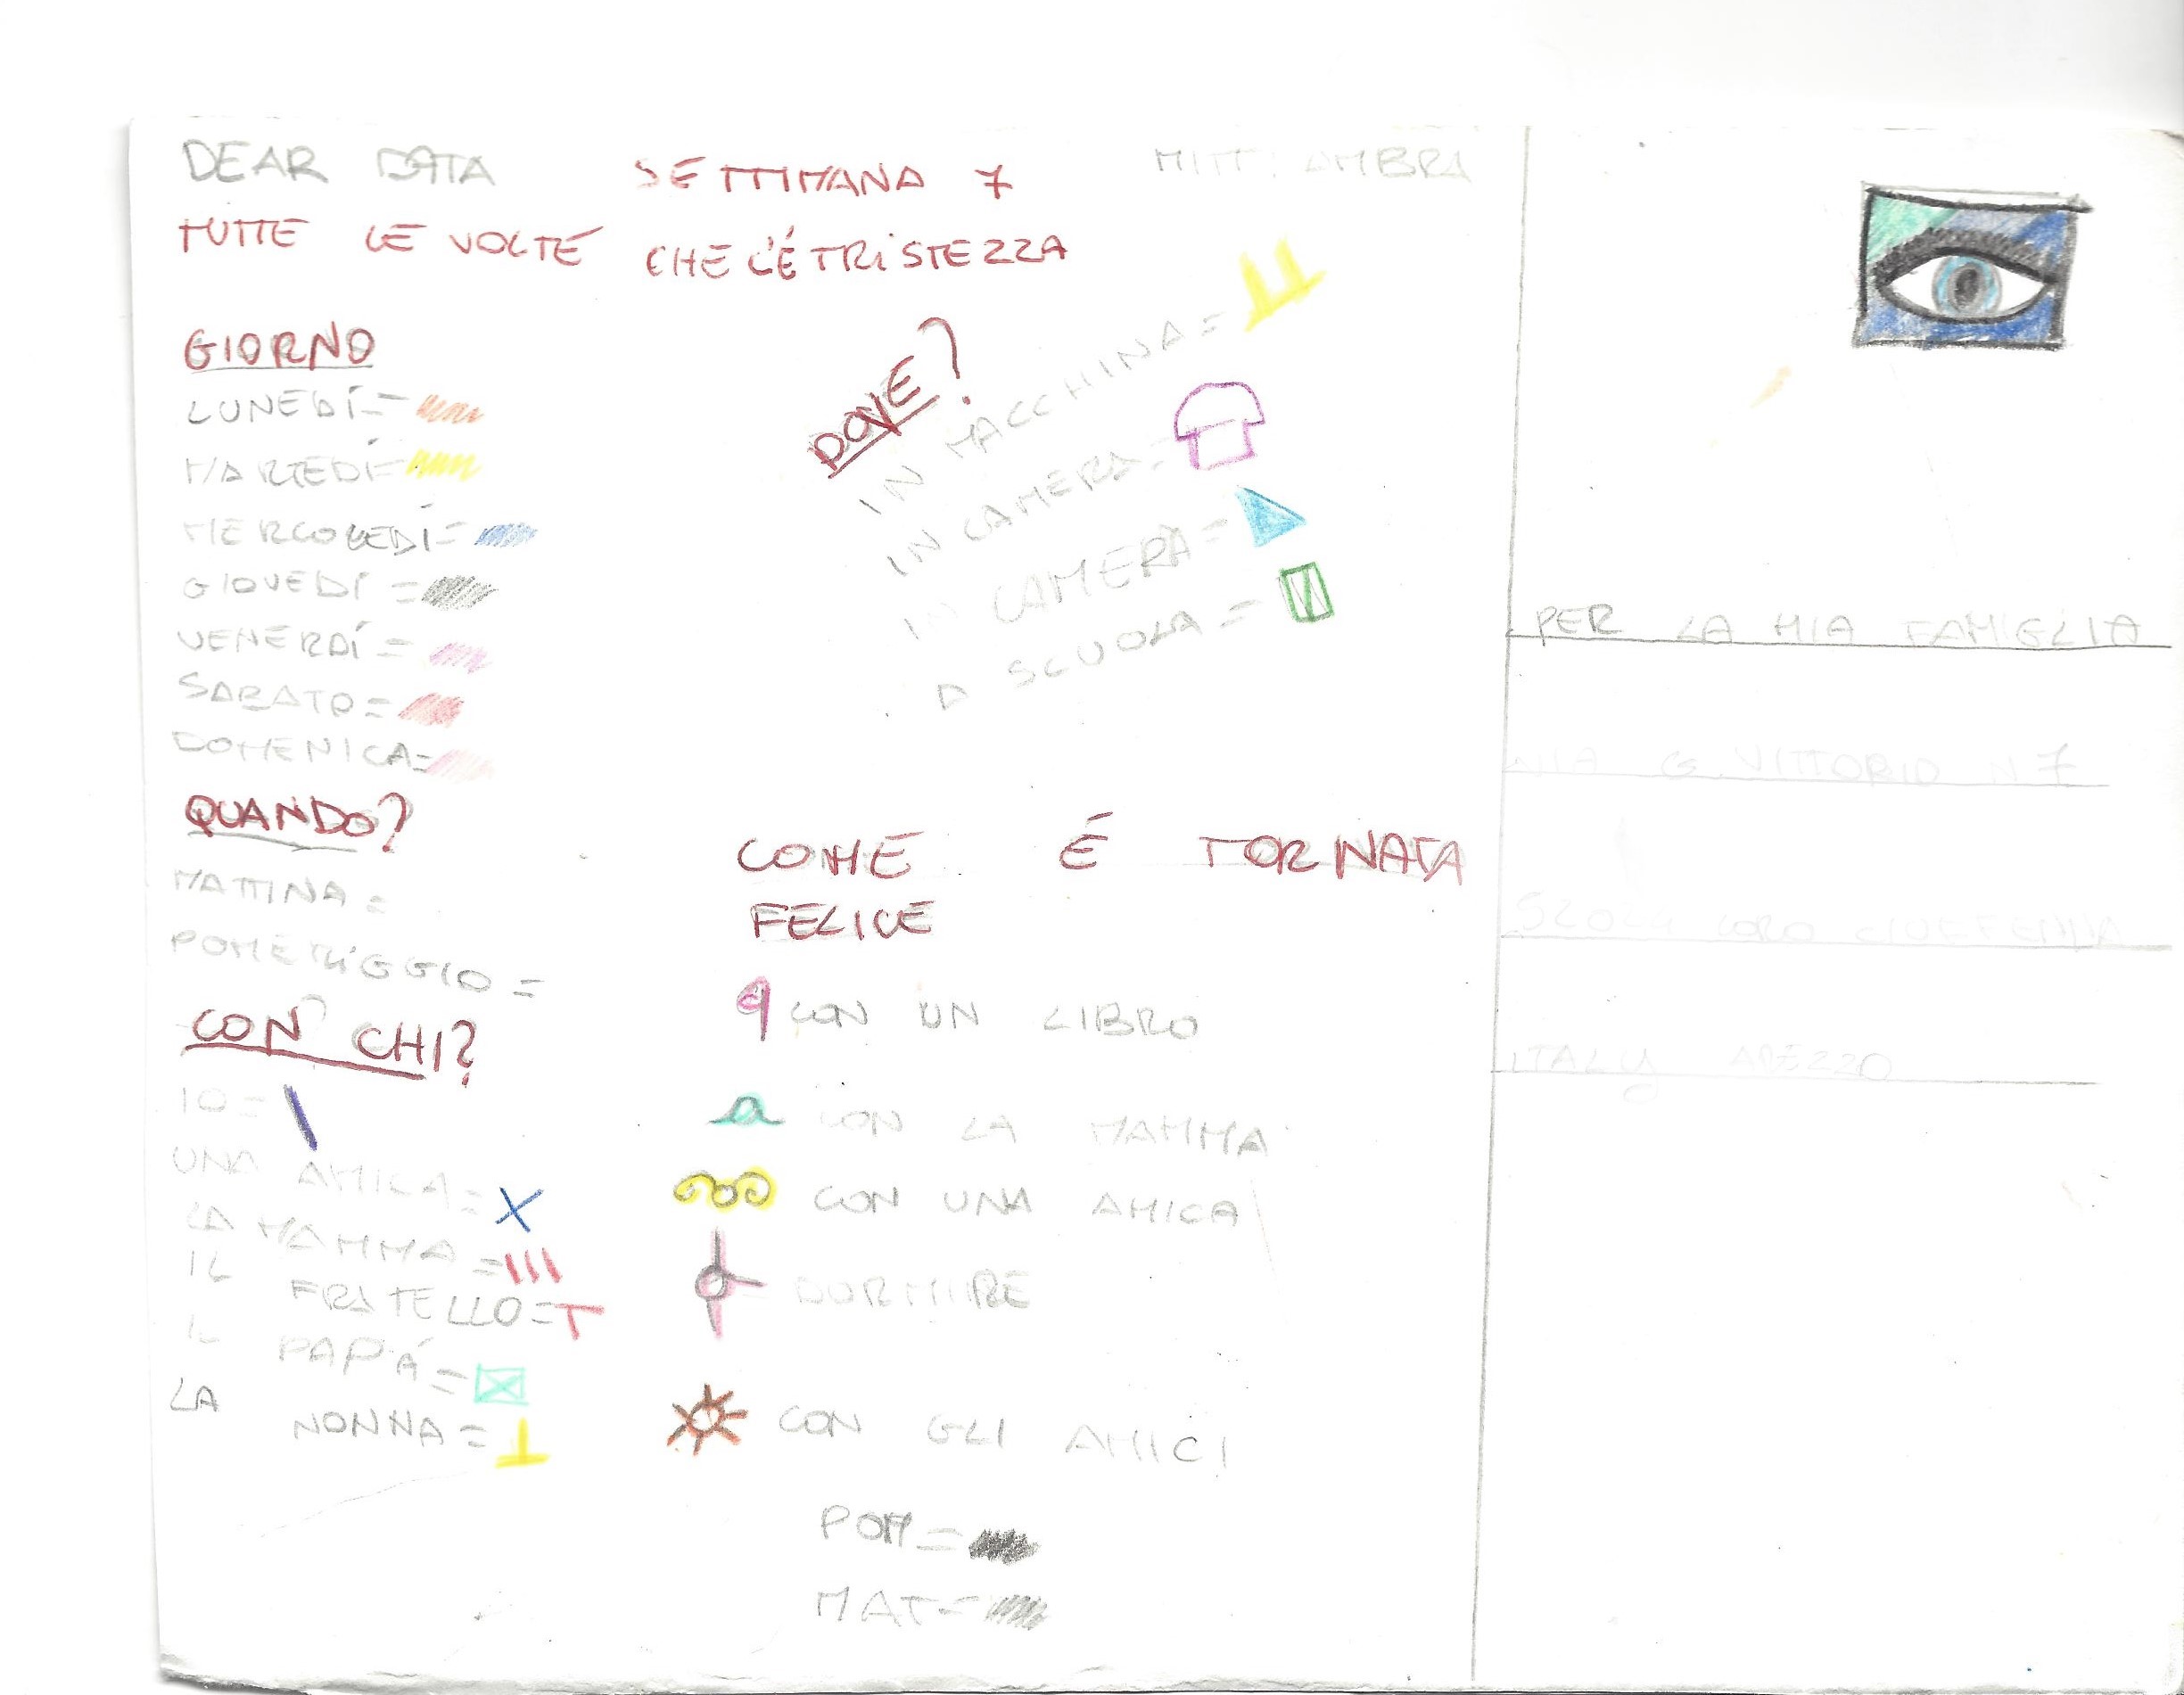 DEAR DATA SETTIMANA 7 MITT: AMBRA
TUTTE LE VOLTE CHE C'É TRISTEZZA
GIORNO
LUNEDÍ=
MARTEDÍ=
MERCOLEDÍ=
GIOVEDÍ=
VENERDÍ=
SABATO=
DOMENICA=
QUANDO?
MATTINA=
POMERIGGIO=
CON CHI?
IO=
UNA AMICA=
LA MAMMA=
IL FRATELLO=
IL PAPÁ=
LA NONNA=
DOVE?
IN MACCHINA=
IN CAMERA=
IN CAMERA=
A SCUOLA=
COME É TORNATA
FELICE
CON UN LIBRO
CON LA MAMMA
CON UNA AMICA
DORMIRE
CON GLI AMICI
POM=
MAT=
PER LA MIA FAMIGLIA
VIA G. VITTORIO N 7
LORO
ITALY AREZZO